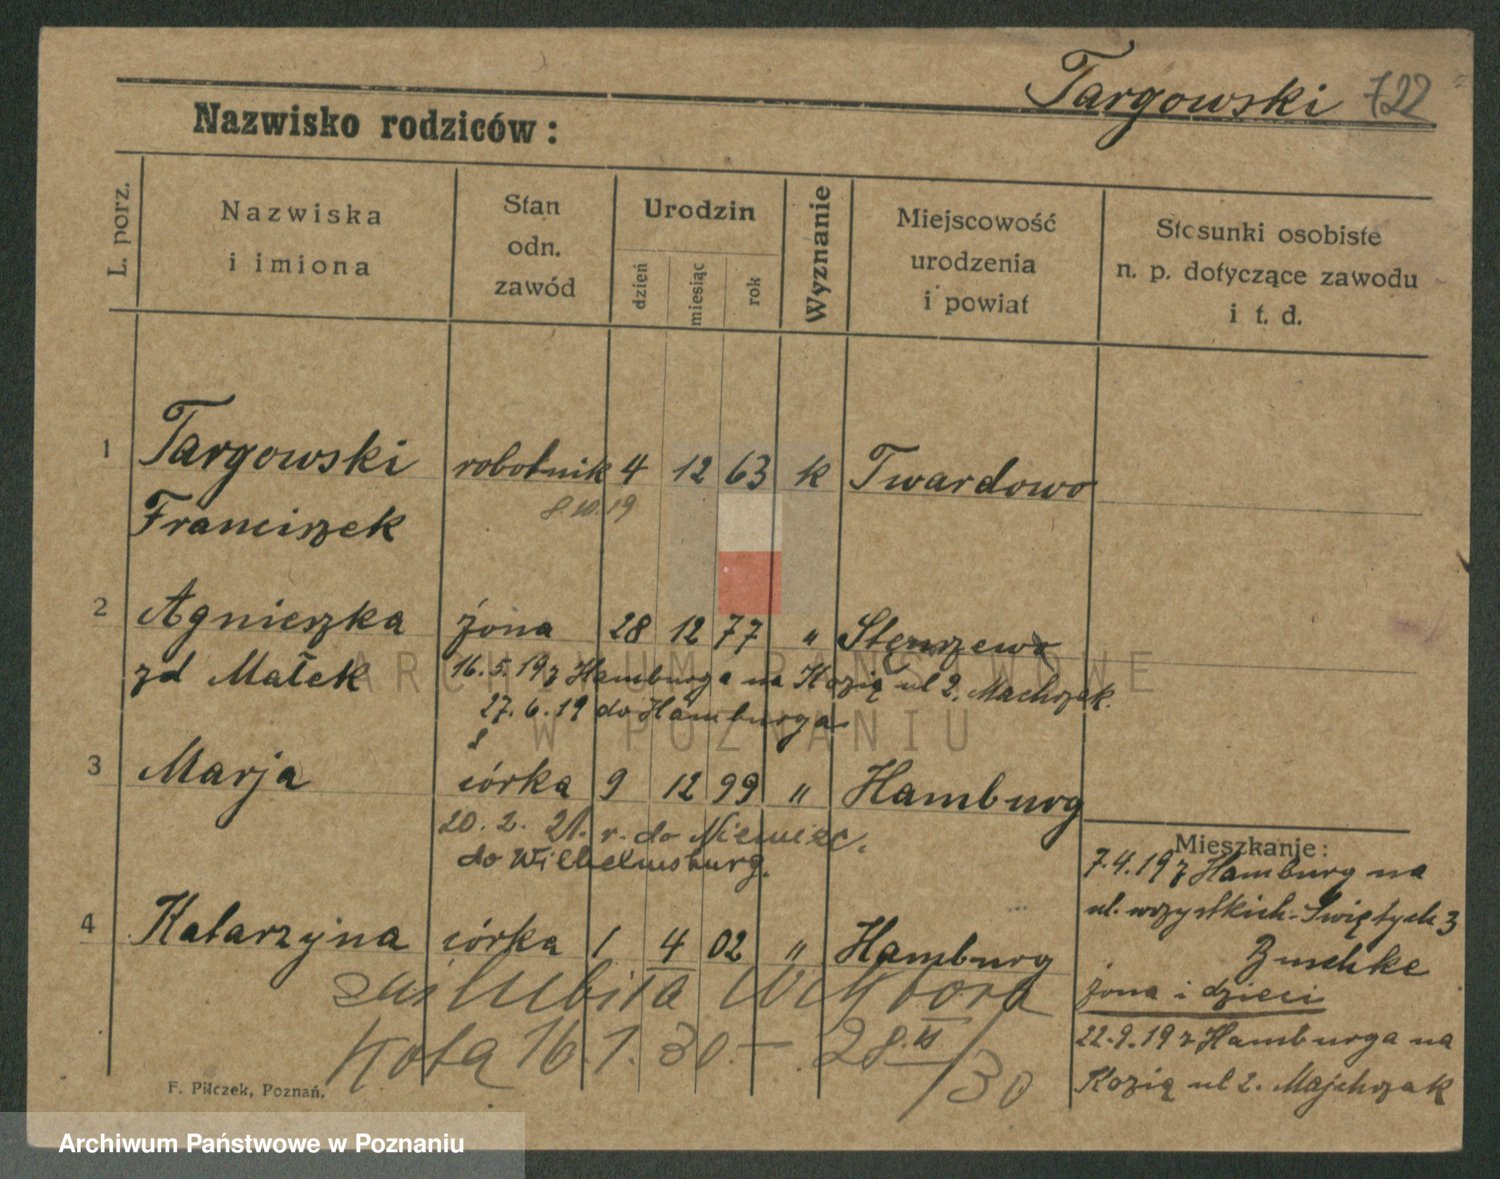 Targowski 722
Nazwisko rodziców:
L. porz.
Nazwiska
i imiona
Stan
odn.
zawód
Urodzin
dzień
miesiąc
rok
Wyznanie
Miejscowość
urodzenia
i powiat
Stosunki osobiste
n. p. dotyczące zawodu
i t. d.
1 Targowski robotnik 4 12 63 k Twardowo
8.10.19
Franciszek
2 Agnieszka żona 28 12 77 " Stęszewo
zd Małek 16.5.19 z Hamburga na Kozią ul 2. Machczak.
27.6.19 do Hamburga
3 Marja córka 9 12 99 " Hamburg
20.2.21. r. do Niemiec.
do Wilhelmsburg.
4 Katarzyna córka 1 4 02 " Hamburg
zaślubiła
Kota 16 1. 30.— 28. /30
Mieszkanie:
7.4.19 z Hamburg na
ul. wszystkich-Świętych 3
Buschke
żona i dzieci
22.9.19 z Hamburga na
Kozią ul 2. Majchrzak
F. Pilczek, Poznań.
ARCHIWUM PAŃSTWOWE
W POZNANIU
Archiwum Państwowe w Poznaniu